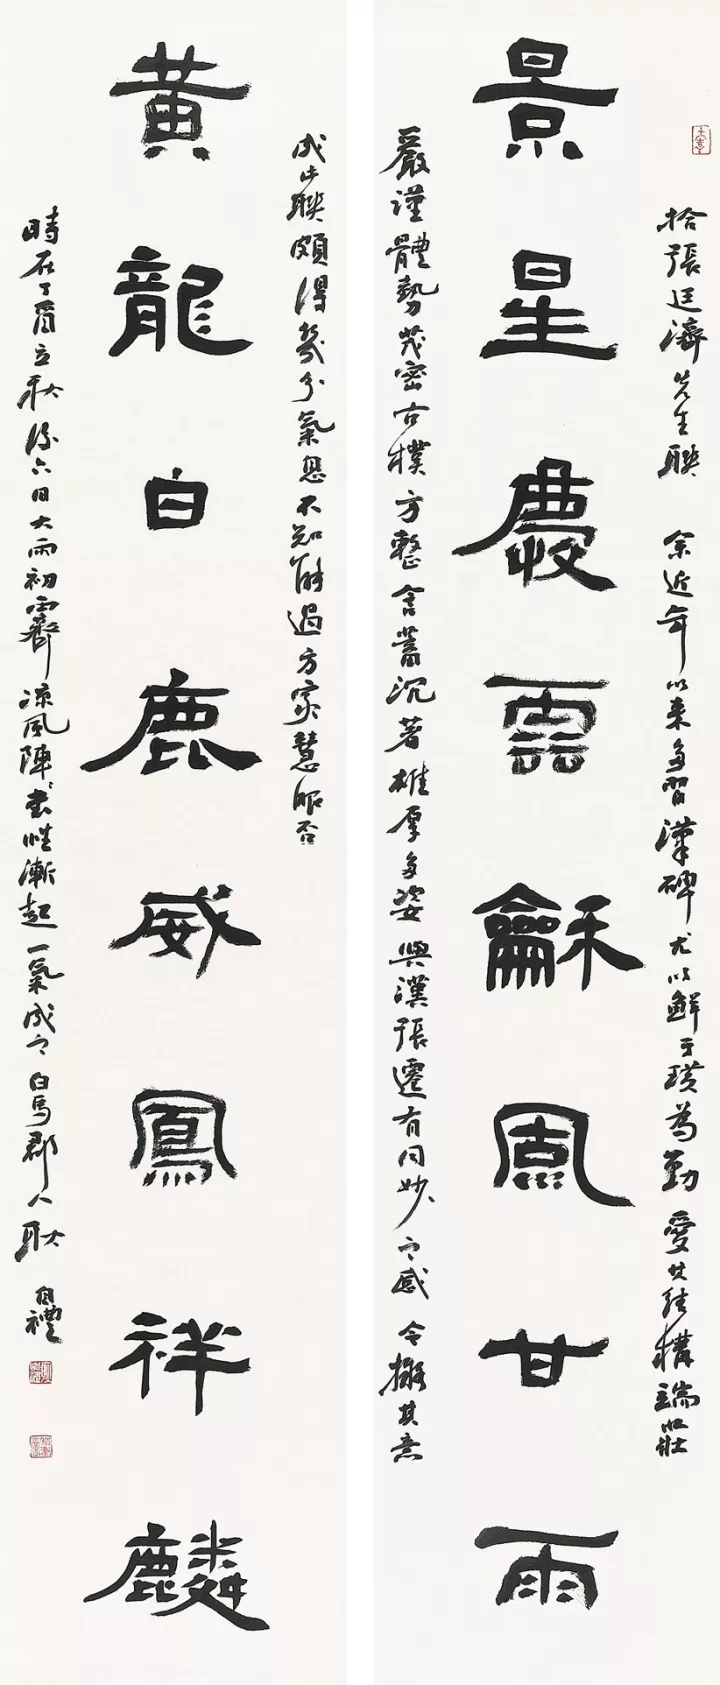 景星慶雲龢風甘雨
拾張廷濟先生聯 余近年以來多習漢碑尤以鮮于璜為勤愛其結構端莊
嚴謹體勢茂密古樸方整含蓄沉著雄厚多姿與漢張遷有同妙之感今擬其意
黃龍白鹿威鳳祥麟
成此聯頗得幾分氣息不知能過方家慧眼否
時在丁酉立秋後六日大雨初霽涼風陣〻書性漸起一氣成之白馬郡人耿自禮